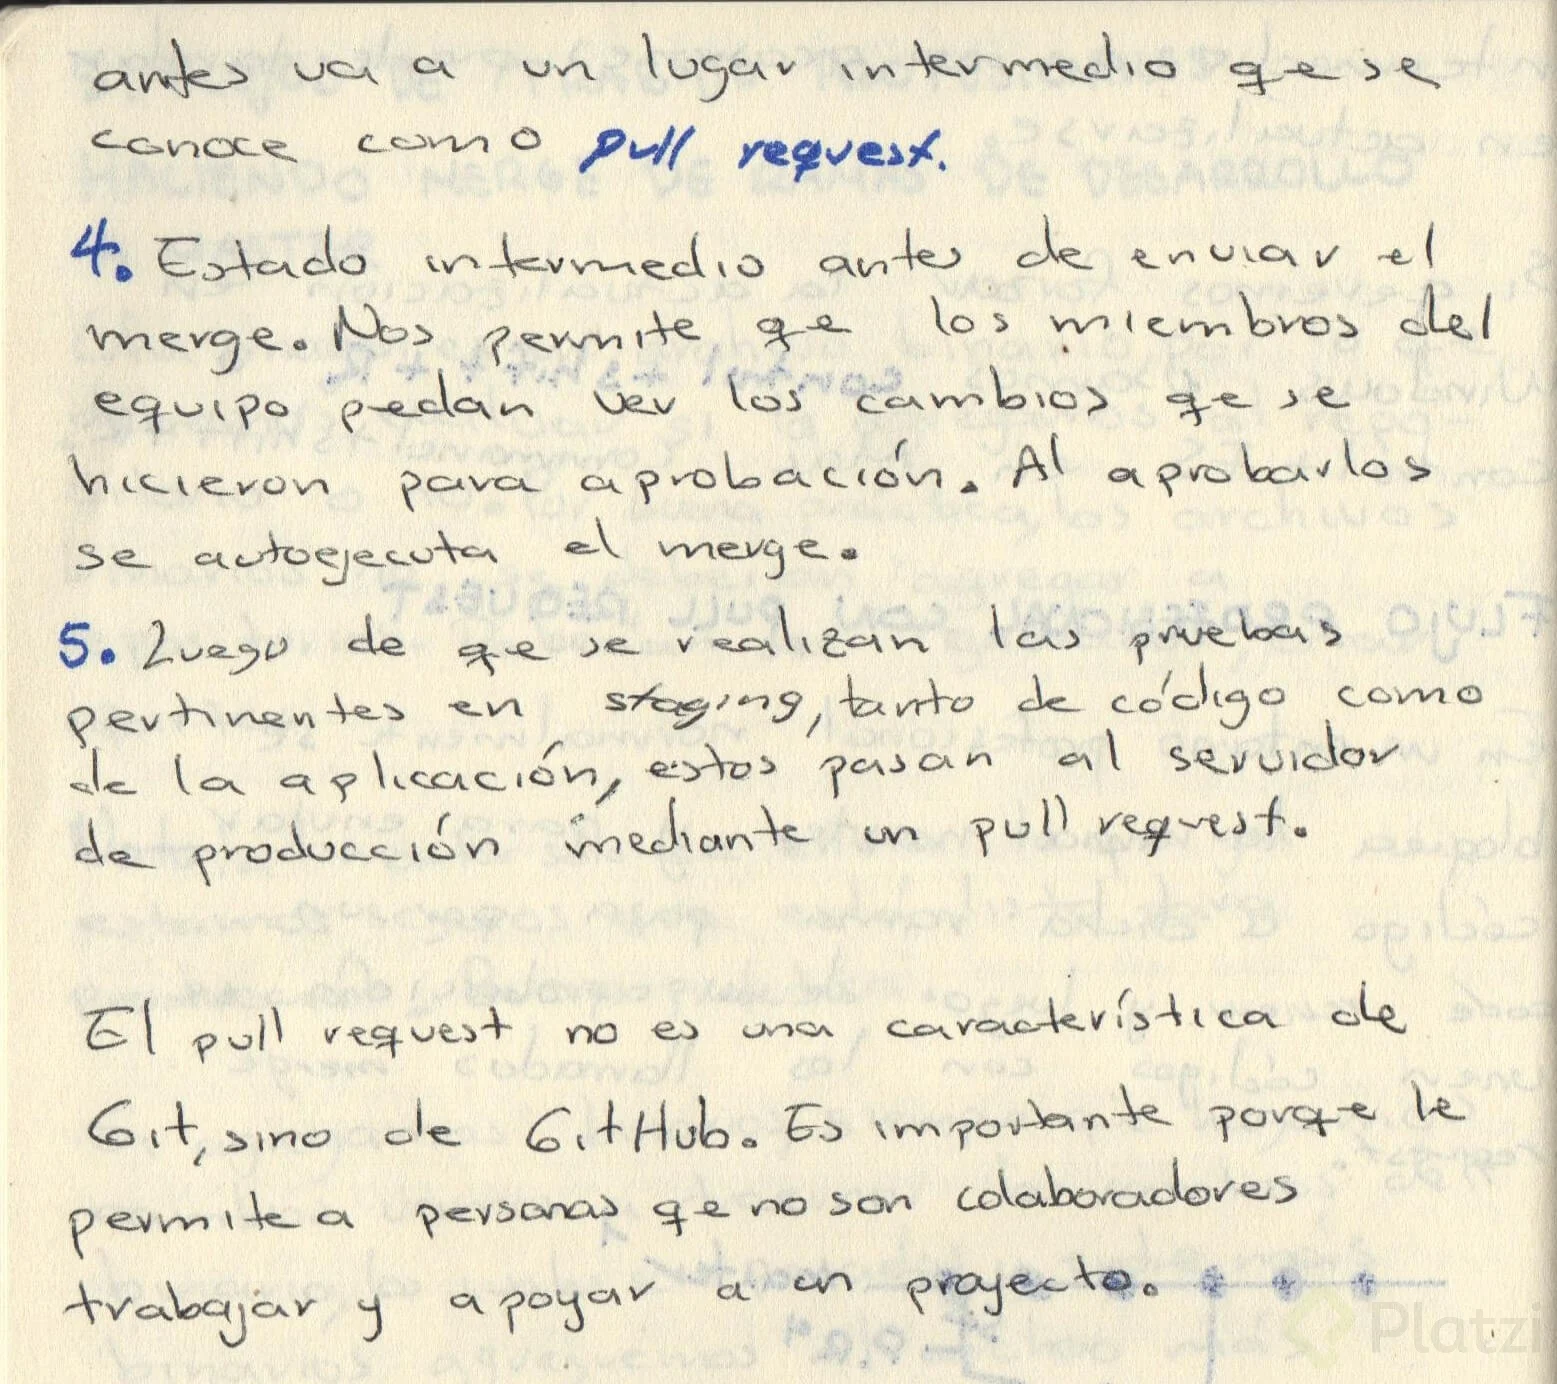 antes va a un lugar intermedio qe se
conoce como pull request.
4. Estado intermedio antes de enviar el
merge. Nos permite qe los miembros del
equipo pedan ver los cambios qe se
hicieron para aprobación. Al aprobarlos
se autoejecuta el merge.
5. Luego de qe se realizan las pruebas
pertinentes en staging, tanto de código como
de la aplicación, estos pasan al servidor
de producción mediante un pull request.
El pull request no es una característica de
Git, sino de GitHub. Es importante porqe le
permite a personas qe no son colaboradores
trabajar y apoyar a un proyecto.
Platzi